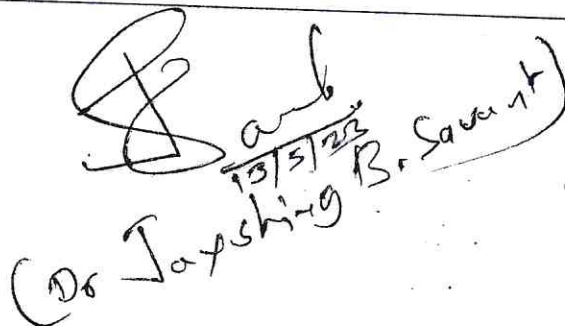 13/5/22
(Dr Jayshing B. Savant)